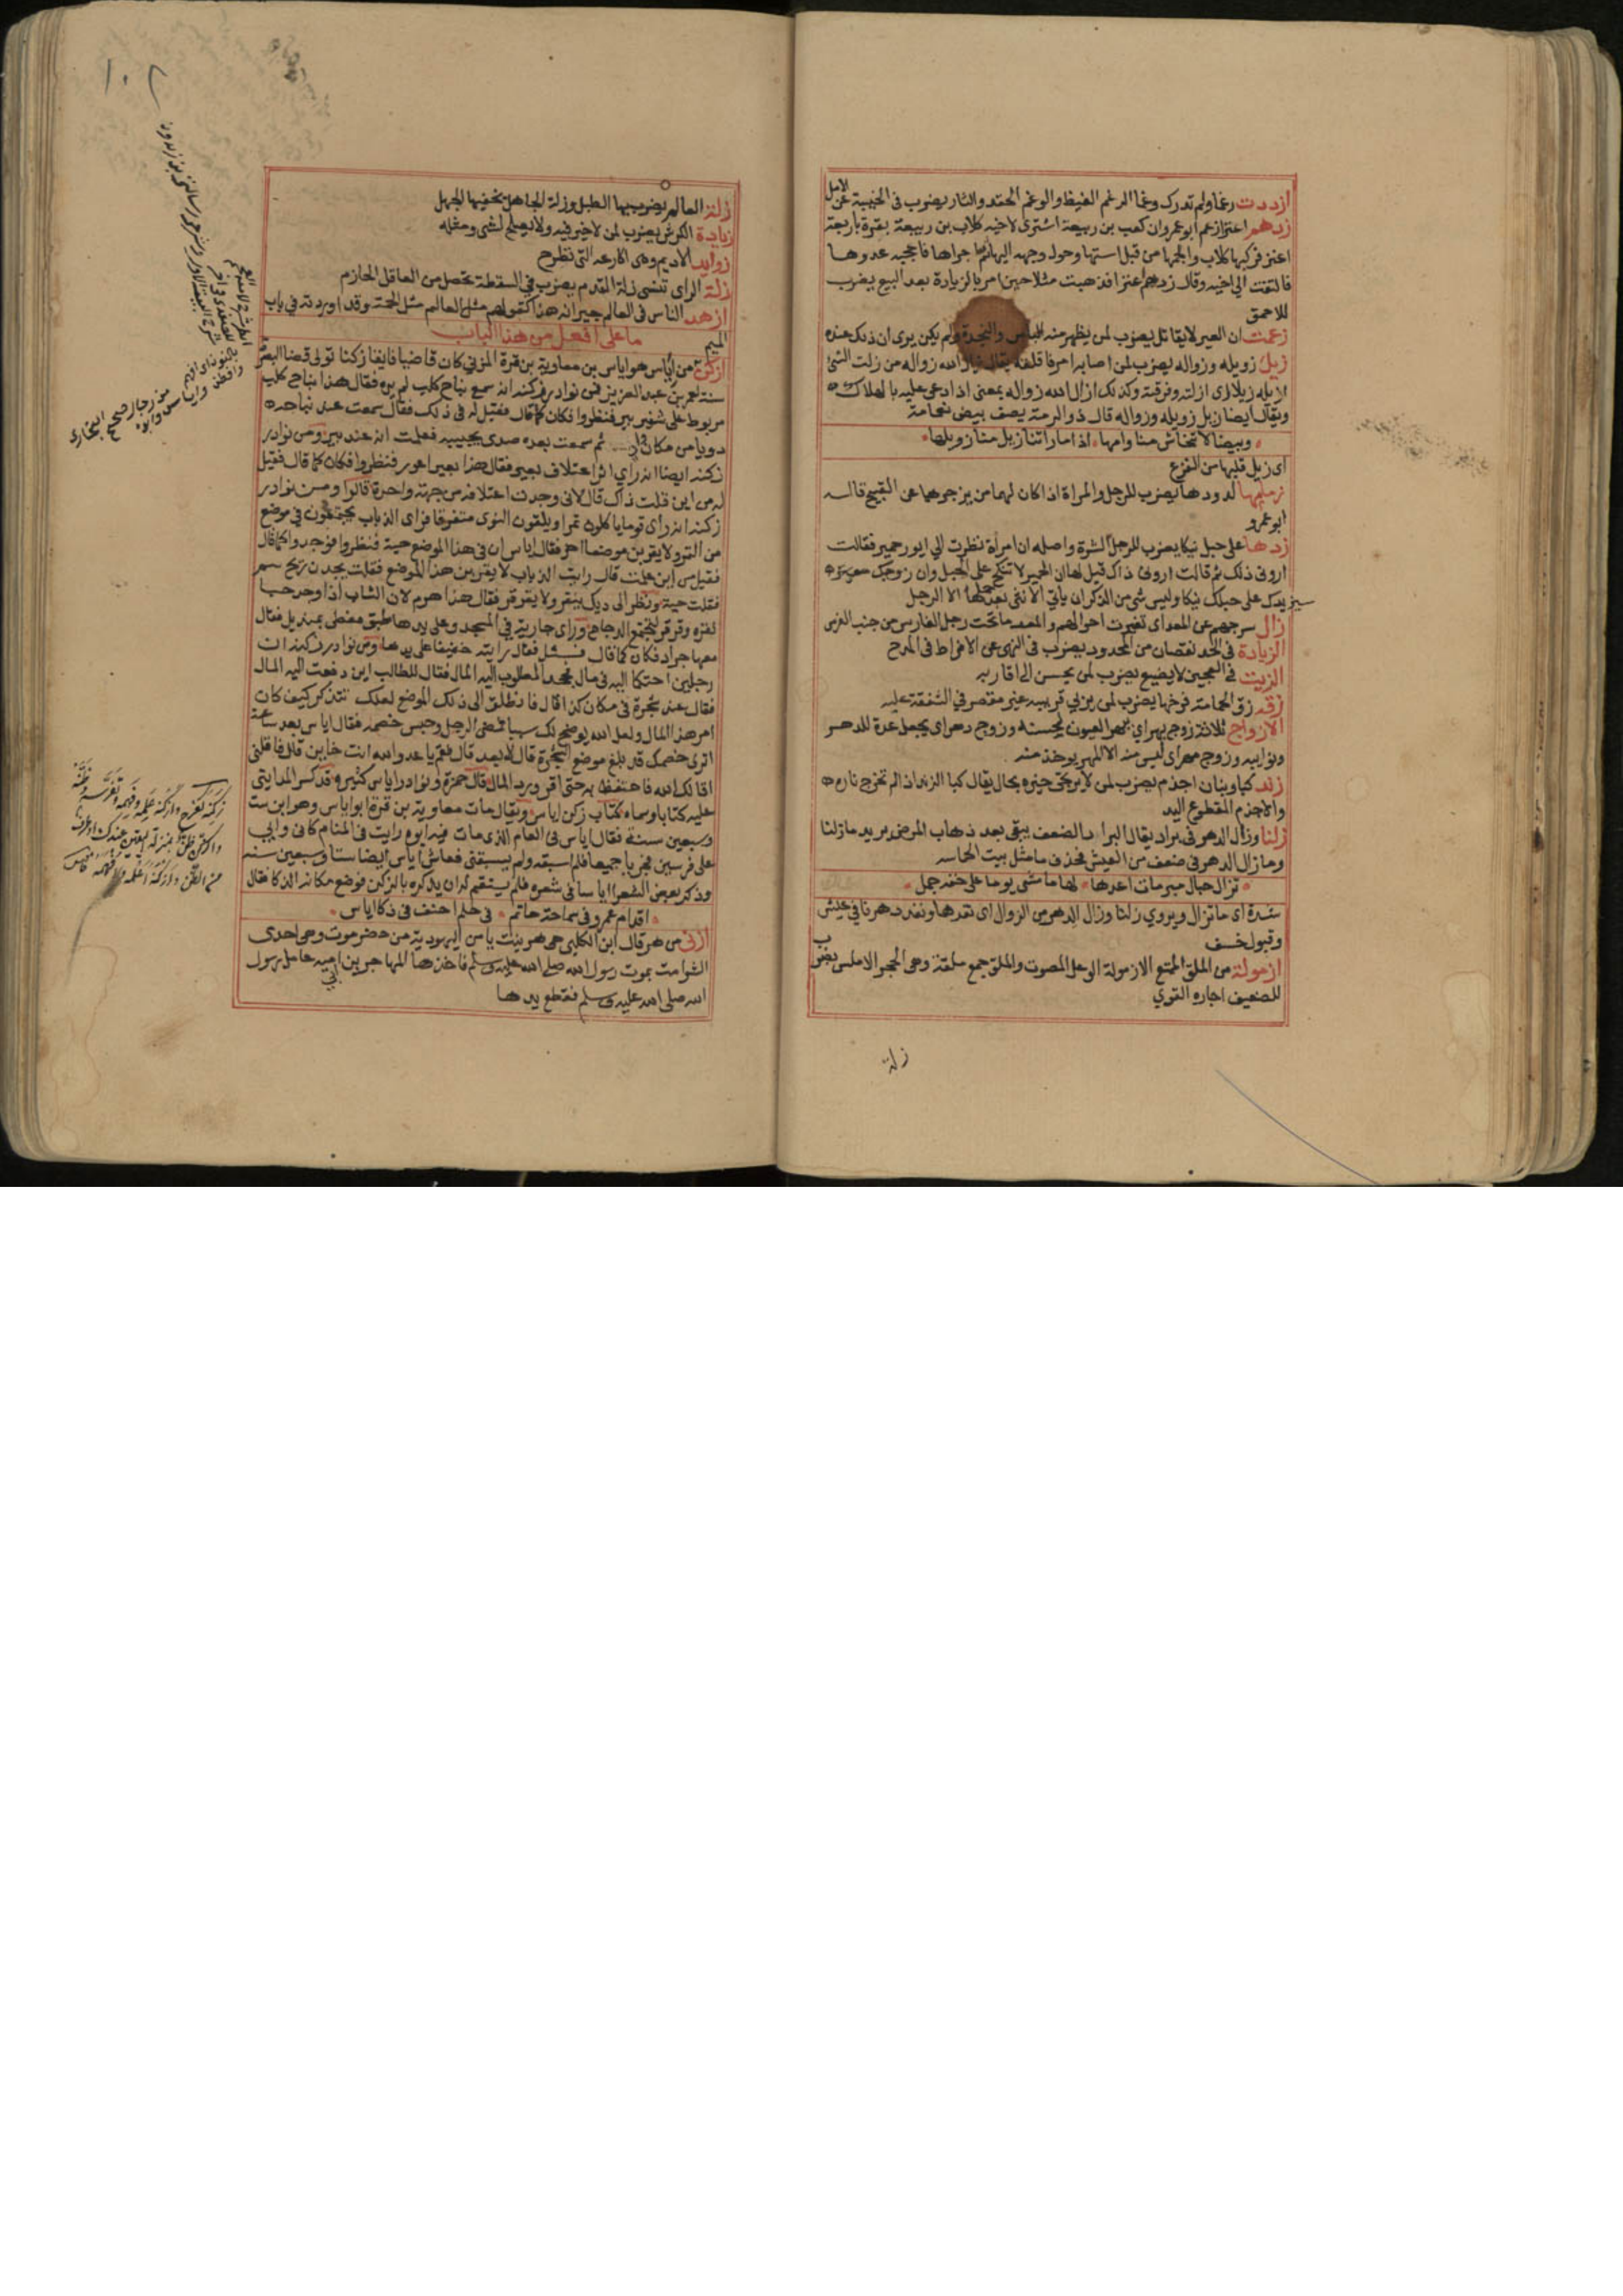 ازددت رغما ولم تدرك وغما الرغم الغيظ والوغم الحقد والثار يضرب في الخيبة عن الامل
زدهم اعنزا زعم ابو عمرو ان كعب بن ربيعة اشترى لاخيه كلاب بن ربيعة بقرة باربعة
اعنز فركبها كلاب والجمها من قبل استها وحول وجهه اليها ثم اجراها فاعجبه عدوها
فالتفت الى اخيه وقال زدهم اعنزا فذهبت مثلا حين امر بالزيادة بعد البيع يضرب
للاحمق
زعمت ان العير لا يقاتل يضرب لمن يظهر منه الباس والنجدة ولم يكن يرى ان ذلك عنده
زيل زويله وزواله يضرب لمن اصابه امر فاقلقه يقال ازال الله زواله من زلت الشئ
ازيله زيلا اى ازلته وفرقته وكذلك ازال الله زواله بمعنى اذا دعى عليه بالهلاك
ويقال ايضا زيل زويله وزواله قال ذو الرمة يصف بيض نعامة
وبيضا لا تنحاش منا وامها اذا ما راتنا زيل منا زويلها
اى زيل قلبها من الفزع
لدودها يضرب للرجل والمراة اذا كان لهما من يزجرهما عن القبيح قاله
ابو عمرو
زدها على حبل نيكا يضرب للرجل الشره واصله ان امراة نظرت الى ايور حمير فقالت
ارونى ذلك ثم قالت ارونى ذاك قيل لها ان الحمير لا تنكح على الحبل وان زوجك
سيزيدك على حبلك نيكا وليس شى من الذكران ياتى الانثى بعد حملها الا الرجل
زال سرجهم عن المعد اى تغيرت احوالهم والمعد ما تحت رجل الفارس من جنب الفرس
الزيادة في الحد نقصان من المحدود يضرب في النهى عن الافراط في المدح
الزيت في العجين لا يضيع يضرب لمن يحسن الى اقاربه
زقه زق الحمامة فرخها يضرب لمن يربي قريبه غير مقصر في الشفقة عليه
الازواج ثلاثة زوج بهر اى يبهر العيون لحسنه وزوج دهر اى يجعل عدة للدهر
ونوايبه وزوج مهر اى ليس منه الا المهر يوخذ منه
زند كبا وبنان اجذم يضرب لمن لا يرجى خيره بحال يقال كبا الزند اذا لم تخرج ناره
والاجذم المقطوع اليد
زلنا وزال الدهر في براد يقال البراد الضعف يبقى بعد ذهاب المرض يريد ما زلنا
وما زال الدهر في ضعف من العيش فحذف ما مثل بيت الحماسه
تزال حبال مبرمات اعدها لها ما مشى يوما على خفه جمل
اى ما تزال ويروي زلنا وزال الدهر من الزوال اى نفدها ونفد دهرنا في عيش
وقبول خسف
ازمولة من الملق الممتنع الازمولة الوعل المصوت والملق جمع ملقة وهى الحجر الاملس يضرب
للضعيف اجاره القوي
زلة
١٠٢
زلة العالم يضرب بها الطبل وزلة الجاهل يخفيها الجهل
زيادة الكرش يضرب لمن لا خير فيه ولا يصلح لشى ومثله
زوايد الاديم وهى اكارعه التى تطرح
زلة الراى تنسى زلة القدم يضرب في السقطة تحصل من العاقل الحازم
ازهد الناس في العالم جيرانه هذا كقولهم مثل العالم مثل الحمة وقد اوردته في باب
الميم
ما على افعل من هذا الباب
ازكن من اياس هو اياس بن معاوية بن قرة المزني كان قاضيا فايقا زكنا تولى قضا البصرة
سنة لعمر بن عبد العزيز فمن نوادر زكنه انه سمع نباح كلب لم يره فقال هذا نباح كلب
مربوط على شفير بير فنظروا فكان كما قال فقيل له في ذلك فقال سمعت عند نباحه
دويا من مكان واحد ثم سمعت بعده صدى يجيبه فعلمت انه عند بير ومن نوادر
زكنه ايضا انه راي اثر اعتلاف بعير فقال هذا بعير اعور فنظروا فكان كما قال فقيل
له من اين قلت ذاك قال لانى وجدت اعتلافه من جهة واحدة قالوا ومن نوادر
زكنه انه راى قوما ياكلون تمرا ويلقون النوى متفرقا فراى الذباب يجتمعون في موضع
من التمر ولا يقربن موضعا اخر فقال اياس ان في هذا الموضع حية فنظروا فوجدوا كما قال
فقيل من اين علمت قال رايت الذباب لا يقربن هذا الموضع فقلت يجدن ريح سم
فقلت حية ونظر الى ديك ينقر ولا يقرقر فقال هذا هرم لان الشاب اذا وجد حبا
نقره وقرقر ليجتمع الدجاج وراى جارية في المسجد وعلى يدها طبق مغطى بمنديل فقال
معها جراد فكان كما قال فسئل فقال رايته خفيفا على يدها ومن نوادر زكنه ان
رجلين احتكما اليه في مال فجحد المطلوب اليه المال فقال للطالب اين دفعت اليه المال
فقال عند شجرة في مكان كذا قال فانطلق الى ذلك الموضع لعلك تتذكر كيف كان
امر هذا المال ولعل الله يوضح لك سببا فمضى الرجل وحبس خصمه فقال اياس بعد ساعة
اترى خصمك قد بلغ موضع الشجرة قال لا بعد قال قم يا عدو الله انت خاين قال فاقلنى
اقالك الله فاحتفظ به حتى اقر ورد المال قال حمزة ونوادر اياس كثيرة وقد كسر المداينى
عليه كتابا وسماه كتاب زكن اياس ويقال مات معاوية بن قرة ابو اياس وهو ابن ست
وسبعين سنة فقال اياس في العام الذى مات فيه ابوه رايت في المنام كانى وابي
على فرسين فجريا جميعا فلم اسبقه ولم يسبقنى فعاش اياس ايضا ستا وسبعين سنة
وذكر بعض الشعرا اياسا في شعره فلم يستقم له ان يذكره بالزكن فوضع مكانه الذكا فقال
اقدام عمرو في سماحة حاتم في حلم احنف في ذكا اياس
ازنى من هر قال ابن الكلبى هى هر بنت يامن اليهودية من حضرموت وهى احدى
الشوامت بموت رسول الله صلى الله عليه وسلم فاخذها المهاجر بن ابي امية عامل رسول
الله صلى الله عليه وسلم فقطع يدها
من رجال صحيح البخارى